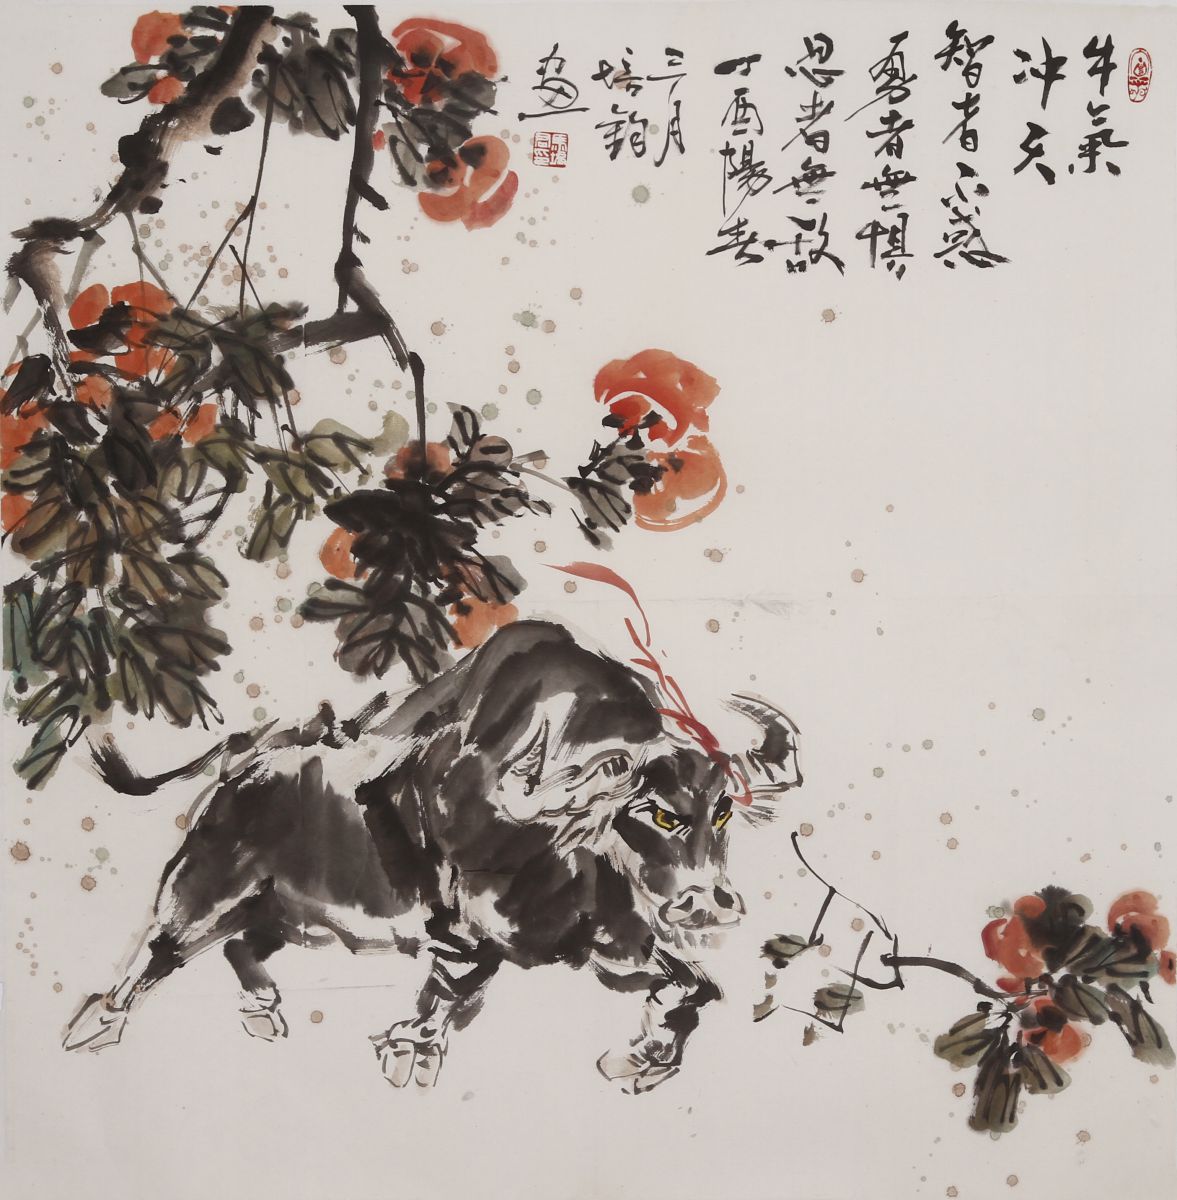 牛氣
冲天
智者不惑
勇者無惧
忍者無敌
丁酉陽春
三月
培鈞
畫